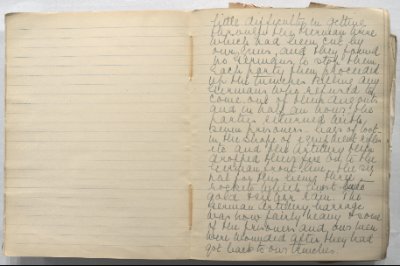 little difficulty in getting
through the German wire
which had been cut by
our guns, and they found
no Germans to stop them
Each party then proceeded
up the trenches killing any
Germans who refused to
come out of their dugouts
and in half an hour the
parties returned with
seven prisoners loads of loot
in the shape of equipment rifles
etc and the Artillery then
dropped their fire on to the
German front line. The sig
nal for this being three
rockets which burst into
gold & silver rain. The
German artillery barrage
was now fairly heavy & some
of the prisoners and our men
were wounded after they had
got back to our trenches.